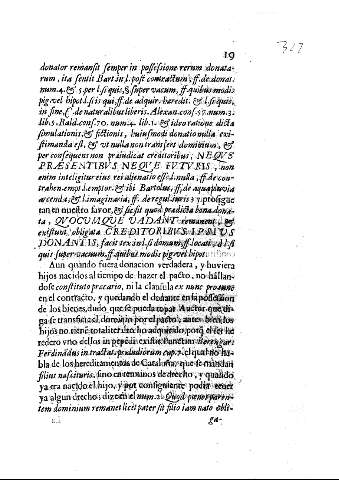 19
donator remansit semper in possessione rerum donata-
rum, ita sentit Bart. in l. post contractum, ff. de donat.
num. 4. & 5. per l. si quis, § super vacuum, ff. quibus modis
pig. vel hipot. l. si is qui, ff. de adquir. haredit. & l. si quis,
in fine, C. de naturalibus liberis. Alexan. cons. 57. num. 2.
lib. 5. Bald. cons. 70. num. 4. lib. 1. & ideo ratione dicta
simulationis, & fictionis, huiusmodi donatio nulla exi-
stimanda est, & vt nulla non transfert dominium, &
per consequens non praiudicat creditoribus, NEQVE
PRÆSENTIBVS NEQVE FVTVRIS, non
enim inteligitur eius rei alienatio esse l. nulla, ff. de con-
trahen. empt. l. emptor, & ibi Bartolus, ff. de aqua pluvia
arcenda, & l. imaginaria, ff. de regul. iuris y prosigue
tan en nuestro favor, & sic sit quod pradicta bona dona-
ta, QVOCVMQVE VADANT remanent, &
existunt, obligata CREDITORIBVS IPSIVS
DONANTIS, facit tex. in l. si domum, ff. locati, & l. si
quis super vacuum, ff. quibus modis pig. vel hipot.
Aun quando fuera donacion verdadera, y huviera
hijos nacidos al tiempo de hazer el pacto, no hallan-
dose constituto precario, ni la clausula ex nunc pro tunc
en el contracto, y quedando el donante en la possession
de los bienes, dudo que se pueda topar Auctor que di-
ga se transfiera el dominio por el pacto, antes bien los
hijos no tiene totaliter dho adquirido, porq̃ el ser he
redero vno dellos in pepedit existit
Ferdinãdus in tract. praludiorum cap. 7. el qual no ha-
bla de los heredamentos de Cataluña, que se
filius nascituris, sino en terminos de derecho, y quando
ya era nacido el hijo, y por consiguiente poder tener
ya algun derecho; dize en el num. 2. Quod
tem dominium remanet licit pater sit filio iam nato obli-
ga-